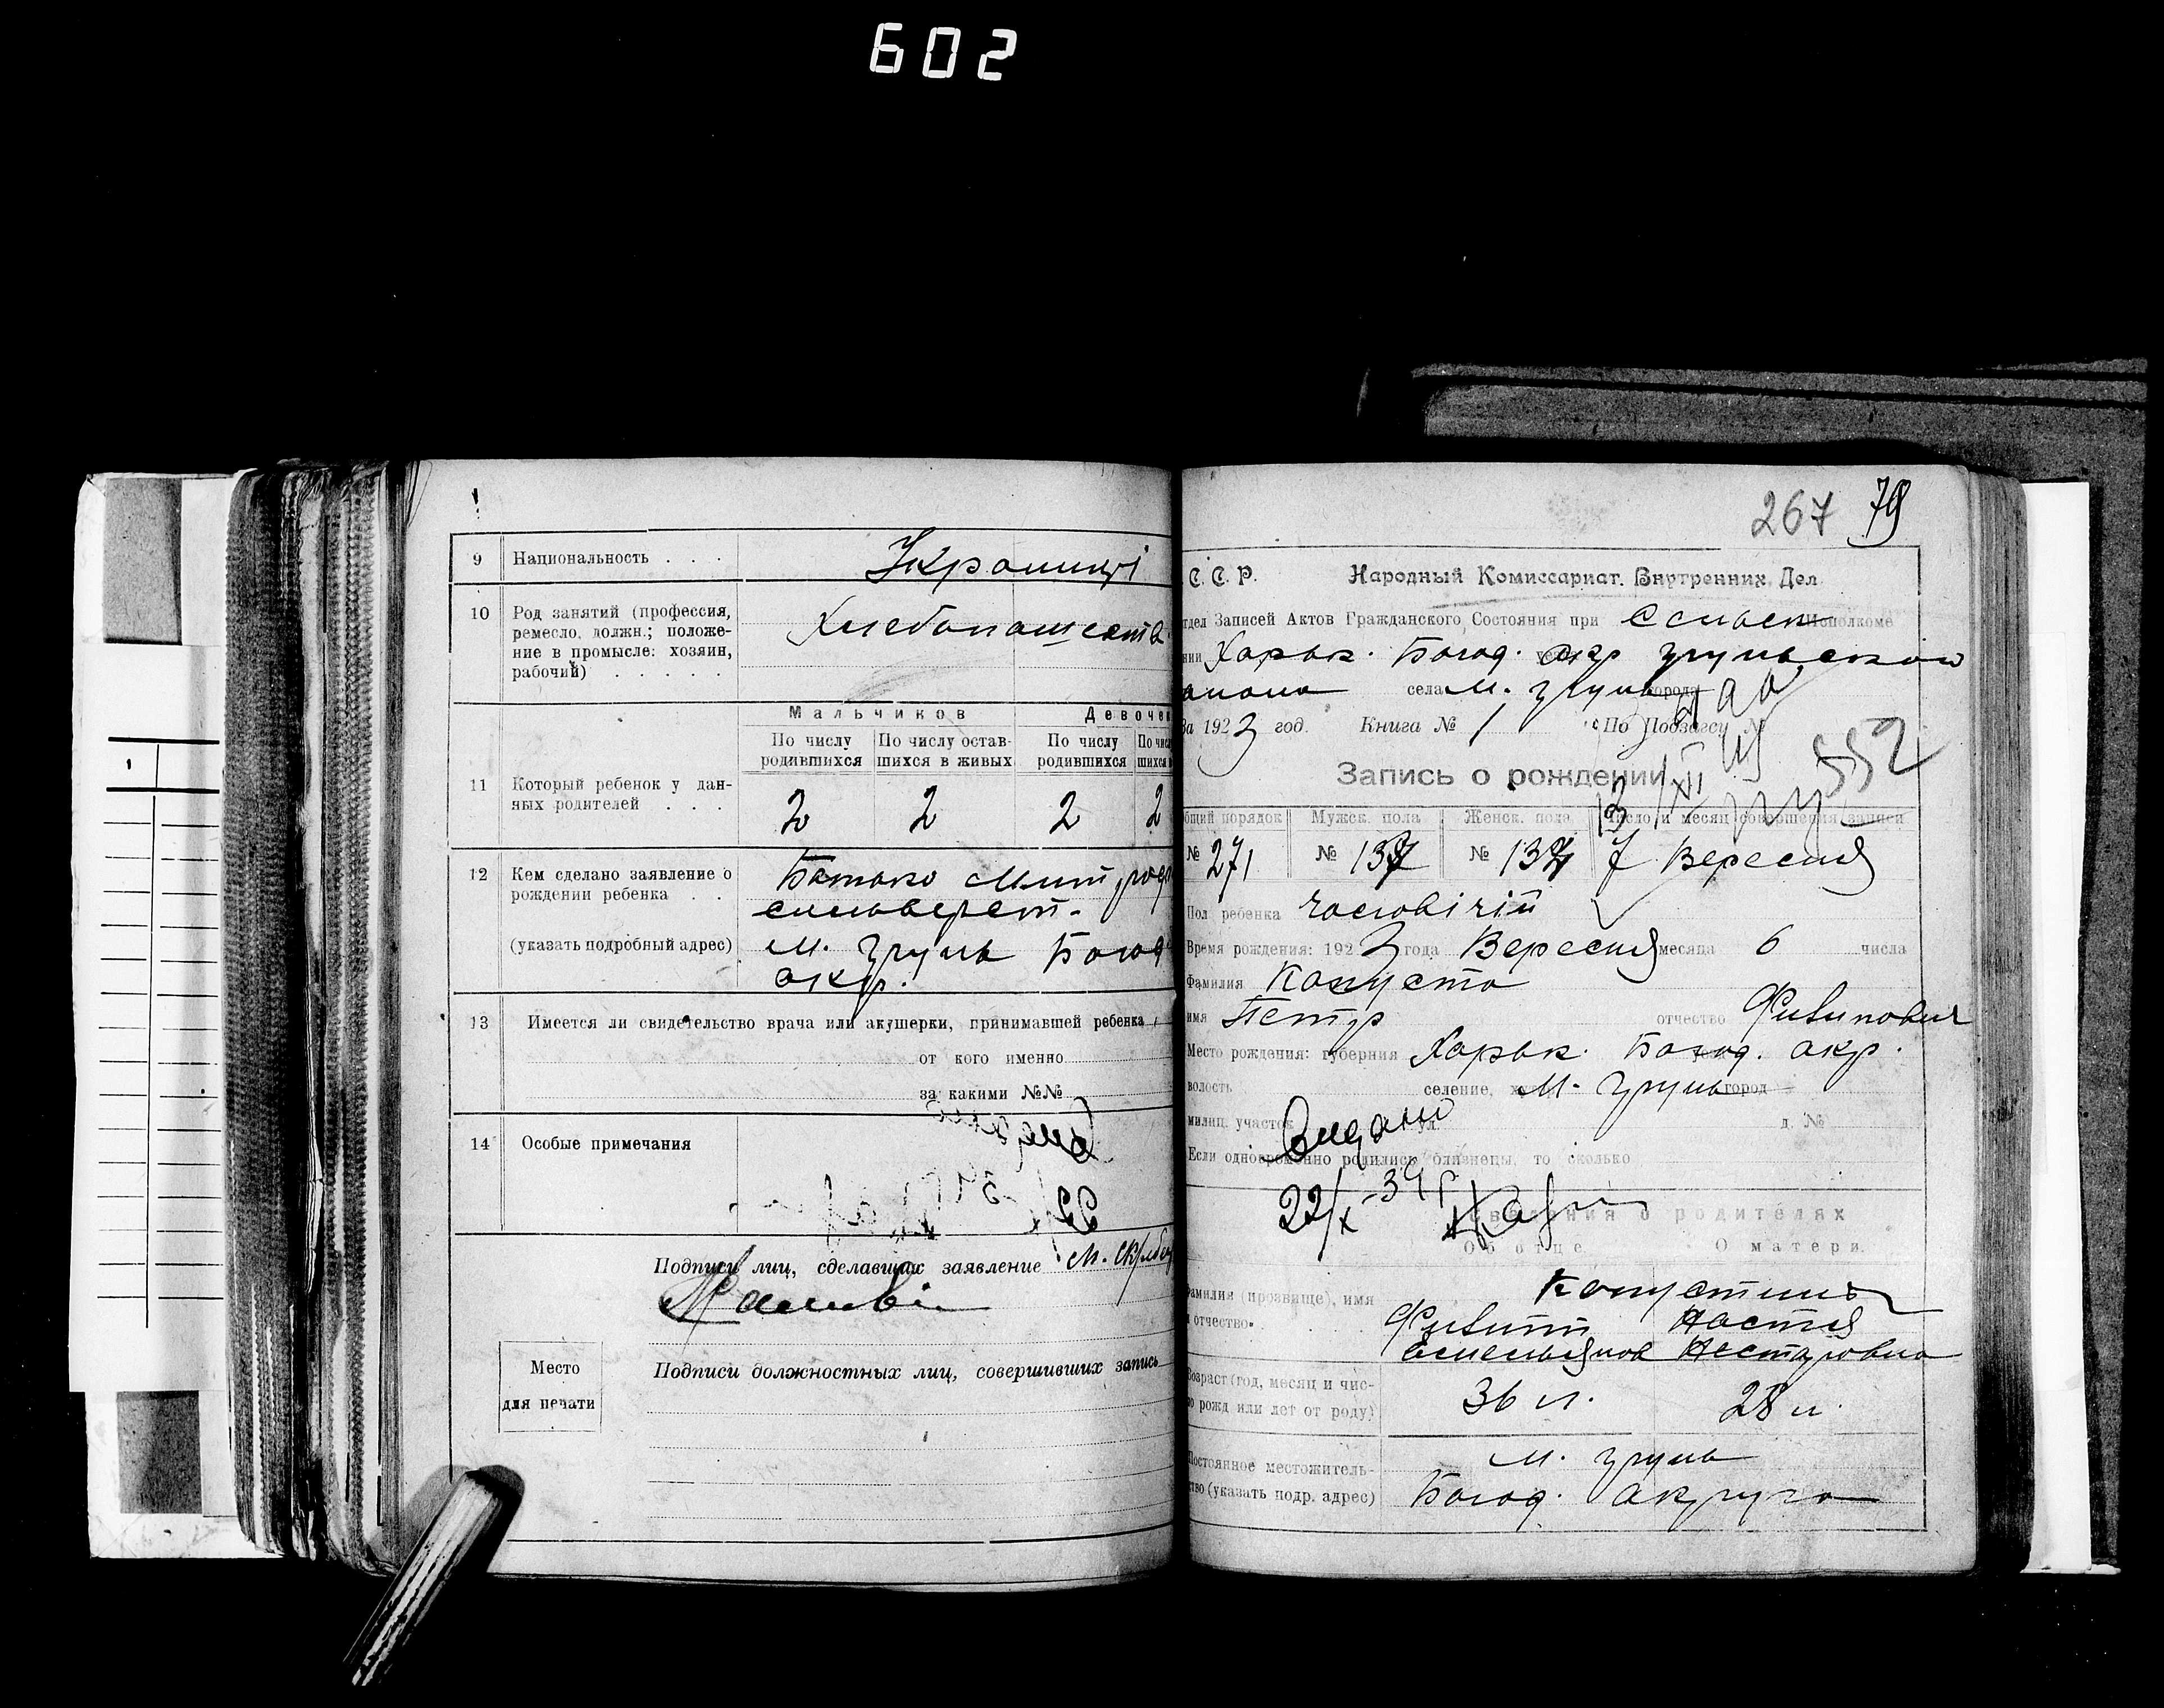 602
9 Национальность . . . Украинці
10 Род занятий (профессия,
ремесло, должн.; положе-
ние в промысле: хозяин,
рабочий) . . . . .
Хлебопашеств
Мальчиков Девочек
По числу родившихся По числу остав-шихся в живых По числу родившихся
11 Который ребенок у дан-
ных родителей . . .
2 2 2 2
12 Кем сделано заявление о
рождении ребенка . .
(указать подробный адрес)
Батько
сильверст.
м. Грунь Богод
окр.
13 Имеется ли свидетельство врача или акушерки, принимавшей ребенка,
от кого именно
за какими №№
14 Особые примечания
Подписи лиц, сделавших заявление М.
Место
для печати
Подписи должностных лиц, совершивших запись
267 79
С. С. Р. Народный Комиссариат Внутренних Дел
тдел Записей Актов Гражданского Состояния при
нии Харьк. Богод. окр Грунського
села м. Грунь города
За 1923 год. Книга № 1 По Подзагсу №
552
Запись о рождении
13/XII
бщий порядок Мужск. пола Женск. пола Число и месяц совершения записи
№ 271 № 137 № 134 7 Вересня
Пол ребенка чоловічій
Время рождения: 1923 года Вересня месяца 6 числа
Фамилия Капуста
имя Петр отчество Филипович
Место рождения: губерния Харьк. Богод. окр.
волость селение, м. Грунь город
милиц. участок ул. д. №
Видано
Если одновременно родились близнецы, то сколько
22/X-39 г.
Сведения о родителях
Об отце О матери.
Фамилия (прозвище), имя
и отчество. . . . .
Капустины
Филипп Настя
Емельянов Несторовна
Возраст (год, месяц и чис-
ло рожд или лет от роду)
36 л. 28 л.
Постоянное местожитель-
ство (указать подр. адрес)
м. Грунь
Богод. округа